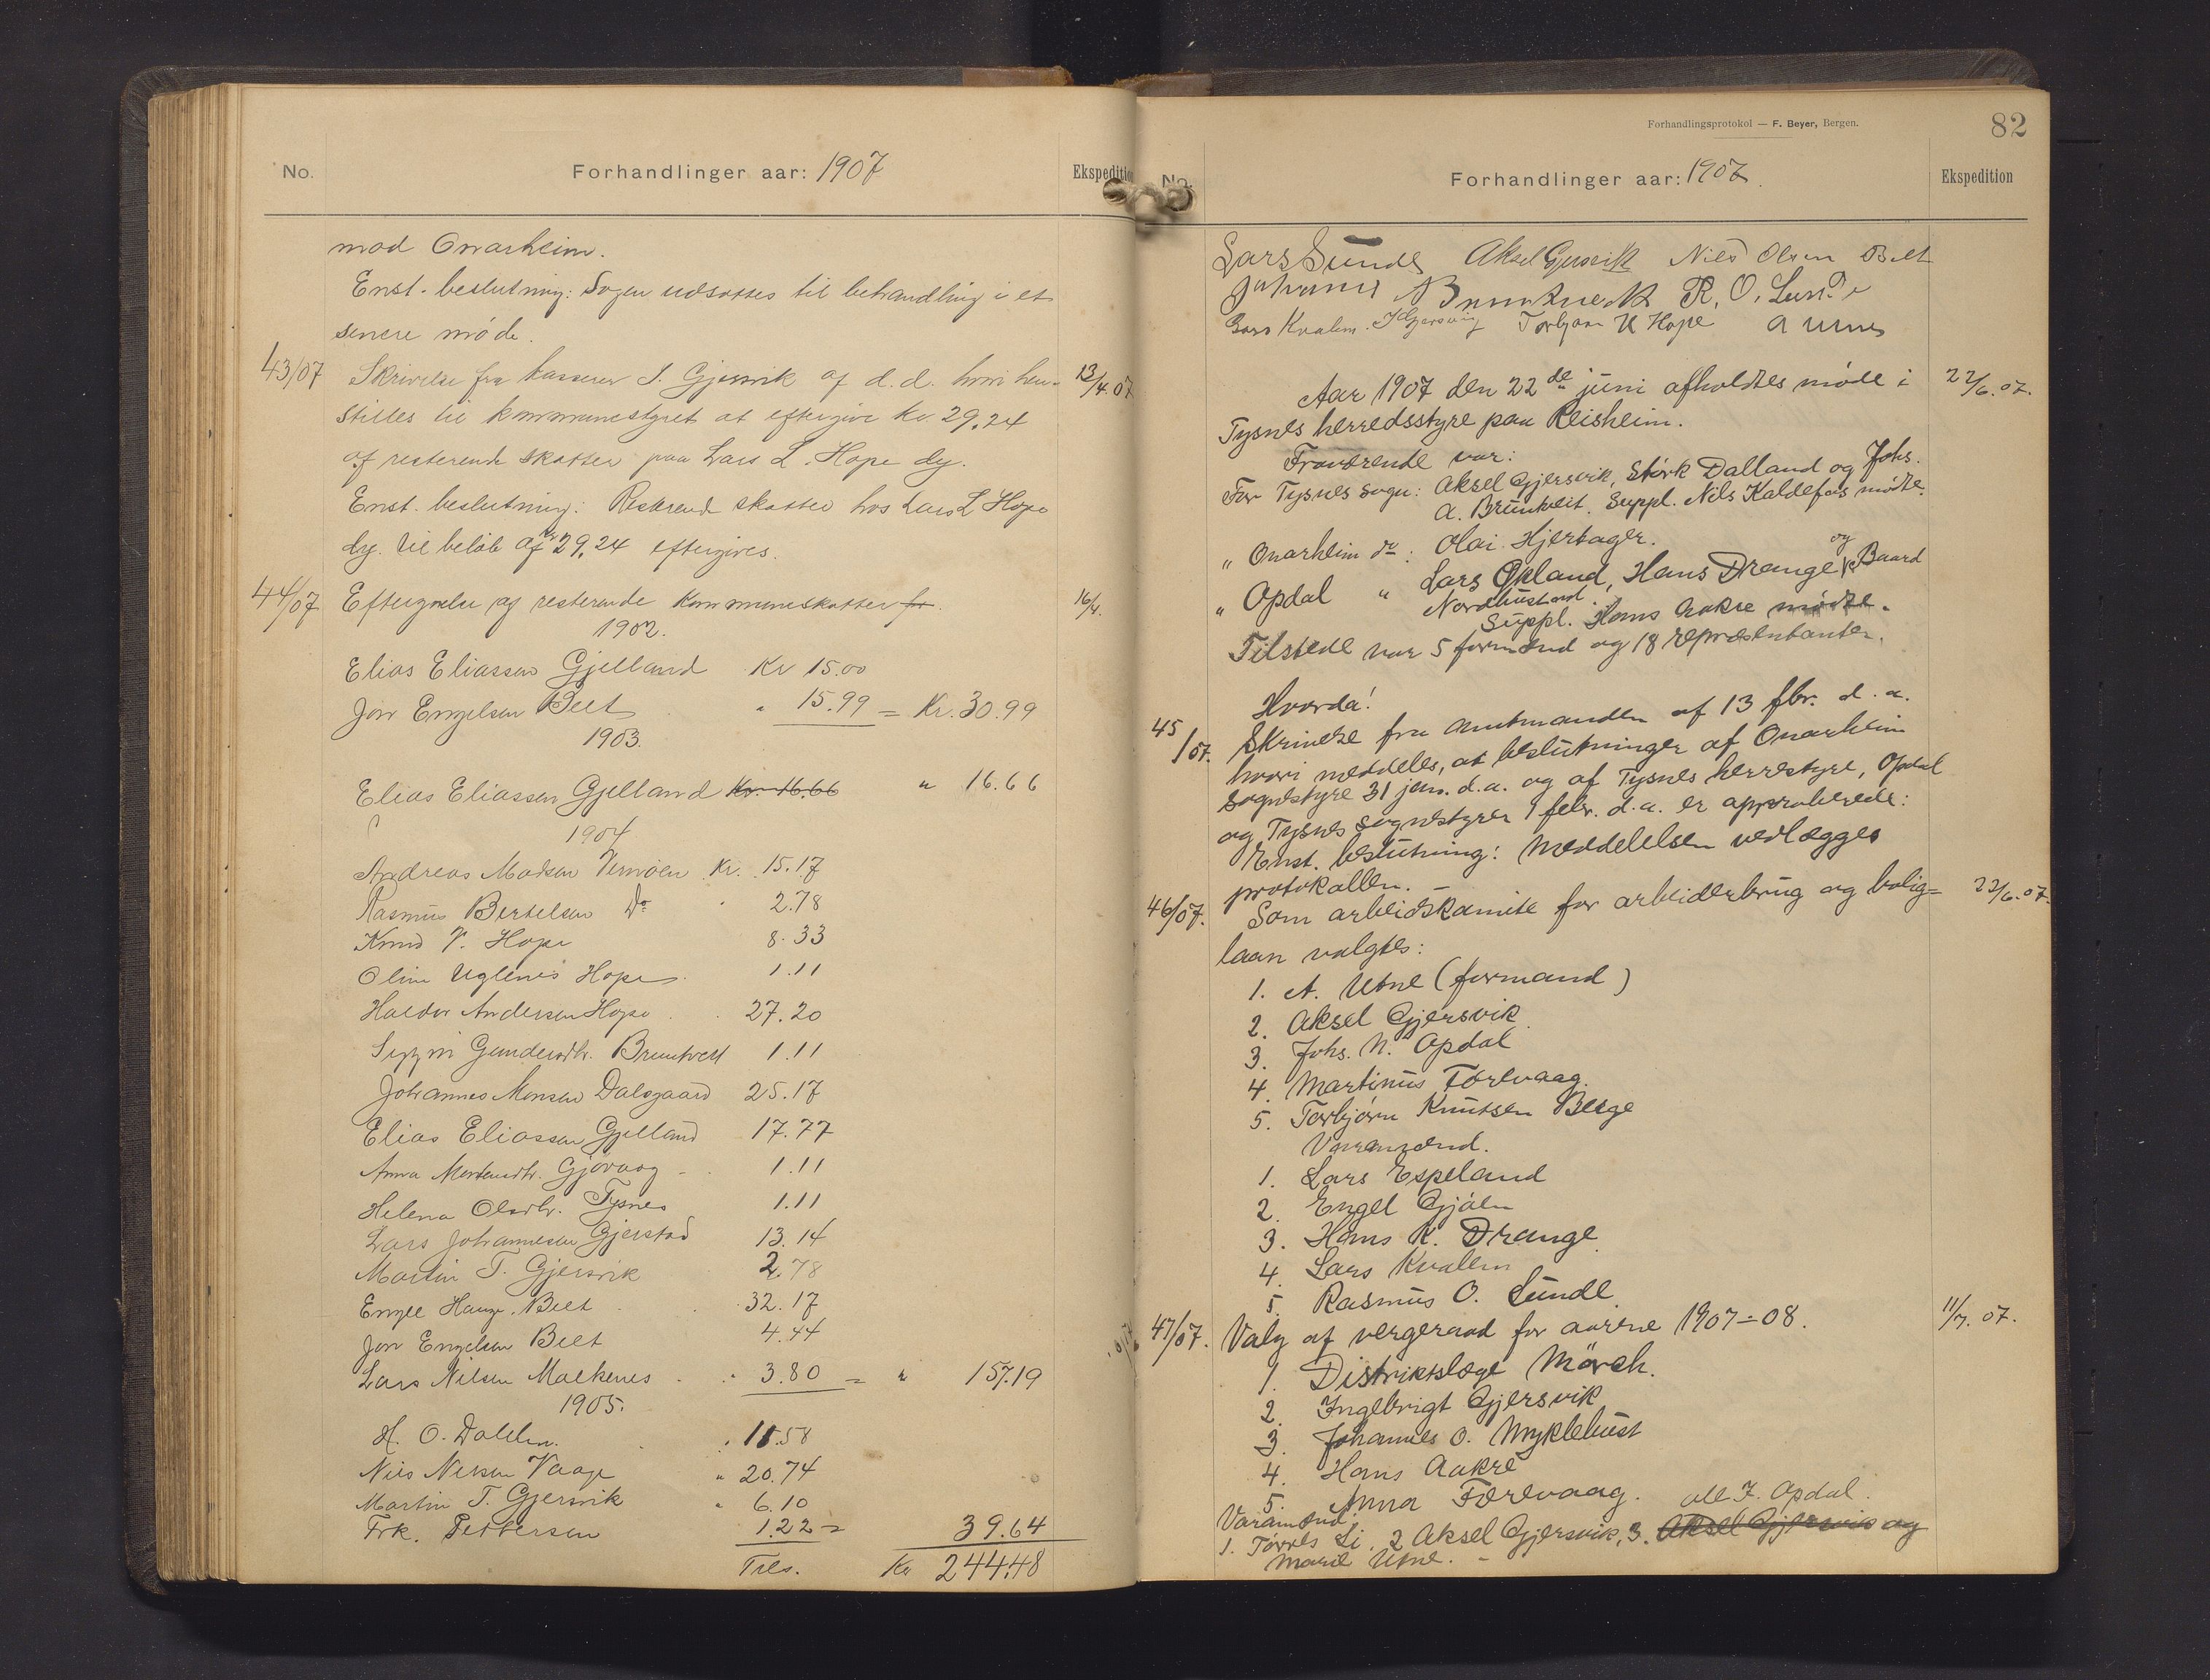 No.
Forhandlinger aar: 1907
Ekspedition
mod Onarheim.
Enst. beslutning: Sagen udsættes til behandling i et
senere møde.
43/07 Skrivelse fra kasserer I. Gjersvik af d.d. hvori hen- 13/4.07
stilles til kommunestyret at eftergive Kr. 29,24
af resterende skatter paa Lars L. Hope dy.
Enst. beslutning: Resterende skatter hos Lars L Hope
dy. til beløb af kr 29,24 eftergives.
44/07 Eftergivelse af resterende kommuneskatter for. 16/4.
1902.
Elias Eliassen Gjelland Kr 15.00
Jon Engelsen Beet " 15.99 = Kr. 30.99
1903.
Elias Eliassen Gjelland Kr. 16.66 " 16.66
1904
Andreas Madsen Vernøen Kr. 15.17
Rasmus Bertelsen Do 2.78
Knud V. Hope 8.33
Oline Uglenes Hope 1.11
Haldor Andersen Hope 27.20
Gundersdtr. Bruntveit 1.11
Johannes Monsen Dalsgaard 25.17
Elias Eliassen Gjelland 17.77
Anna Mortensdtr. Gjøvaag 1.11
Helena Olsdtr. Tysnes 1.11
Lars Johannesen Gjerstad 13.14
Martin T. Gjersvik 2.78
Engel Haug. Beet 32.17
Jon Engelsen Beet 4.44
Lars Nilsen Malkenes " 3.80 = " 157.19
1905.
H. O. Dalen. " 11.58
Nils Nilsen Vaage " 20.74
Martin T. Gjersvik " 6.10
Frk. Pettersen 1.22 = 39.64
Tils. Kr 244.48
Forhandlingsprotokol — F. Beyer, Bergen.
82
No.
Forhandlinger aar: 1907.
Ekspedition
Lars Sunde Aksel Gjersvik Nils Olsen Beet
Johannes Bruntveit R. O. Sunde
Lars Kvalem. I Gjersvig Torbjørn K Hope A Utne
Aar 1907 den 22de juni afholdtes møde i 22/6.07.
Tysnes herredsstyre paa Reisheim.
Fraværende var:
For Tysnes sogn: Aksel Gjersvik, Størk Dalland og Johs.
A. Bruntveit. Suppl. Nils Kaldefos mødte.
" Onarheim do: Olai Hjertager.
" Opdal " Lars Økland, Hans Drange og Baard
Nordhustad.
Suppl. Hans Aakre mødte.
Tilstede var 5 formænd og 18 repræsentanter.
Hvorda!
45/07. Skrivelse fra amtmanden af 13 fbr. d.a.
hvori meddeles, at beslutninger af Onarheim
sognestyre 31 jan. d.a. og af Tysnes herrestyre, Opdal
og Tysnes sognestyrer 1 febr. d.a. er approberede:
Enst. beslutning: Meddelelsen vedlægges
protokollen. –
46/07. Som arbeidskomite for arbeiderbrug og bolig= 22/6.07.
laan valgtes:
1. A. Utne (formand)
2. Aksel Gjersvik
3. Johs. N. Opdal
4. Martinus Tørevaag.
5. Torbjørn Knutsen Beige
Varamænd.
1. Lars Espeland
2. Engel Gjøen
3. Hans K. Drange
4. Lars Kvalem
5. Rasmus O. Sunde
47/07. Valg af vergeraad for aarene 1907–08. 11/7.07.
1. Distriktslæge Mörch.
2. Ingebrigt Gjersvik
3. Johannes O. Myklebust
4. Hans Aakre
5. Anna Tørevaag.
Varamænd: Ole J. Opdal.
1. Tørres Li, 2 Aksel Gjersvik, 3. Aksel Gjersvik og
Marie Utne. –